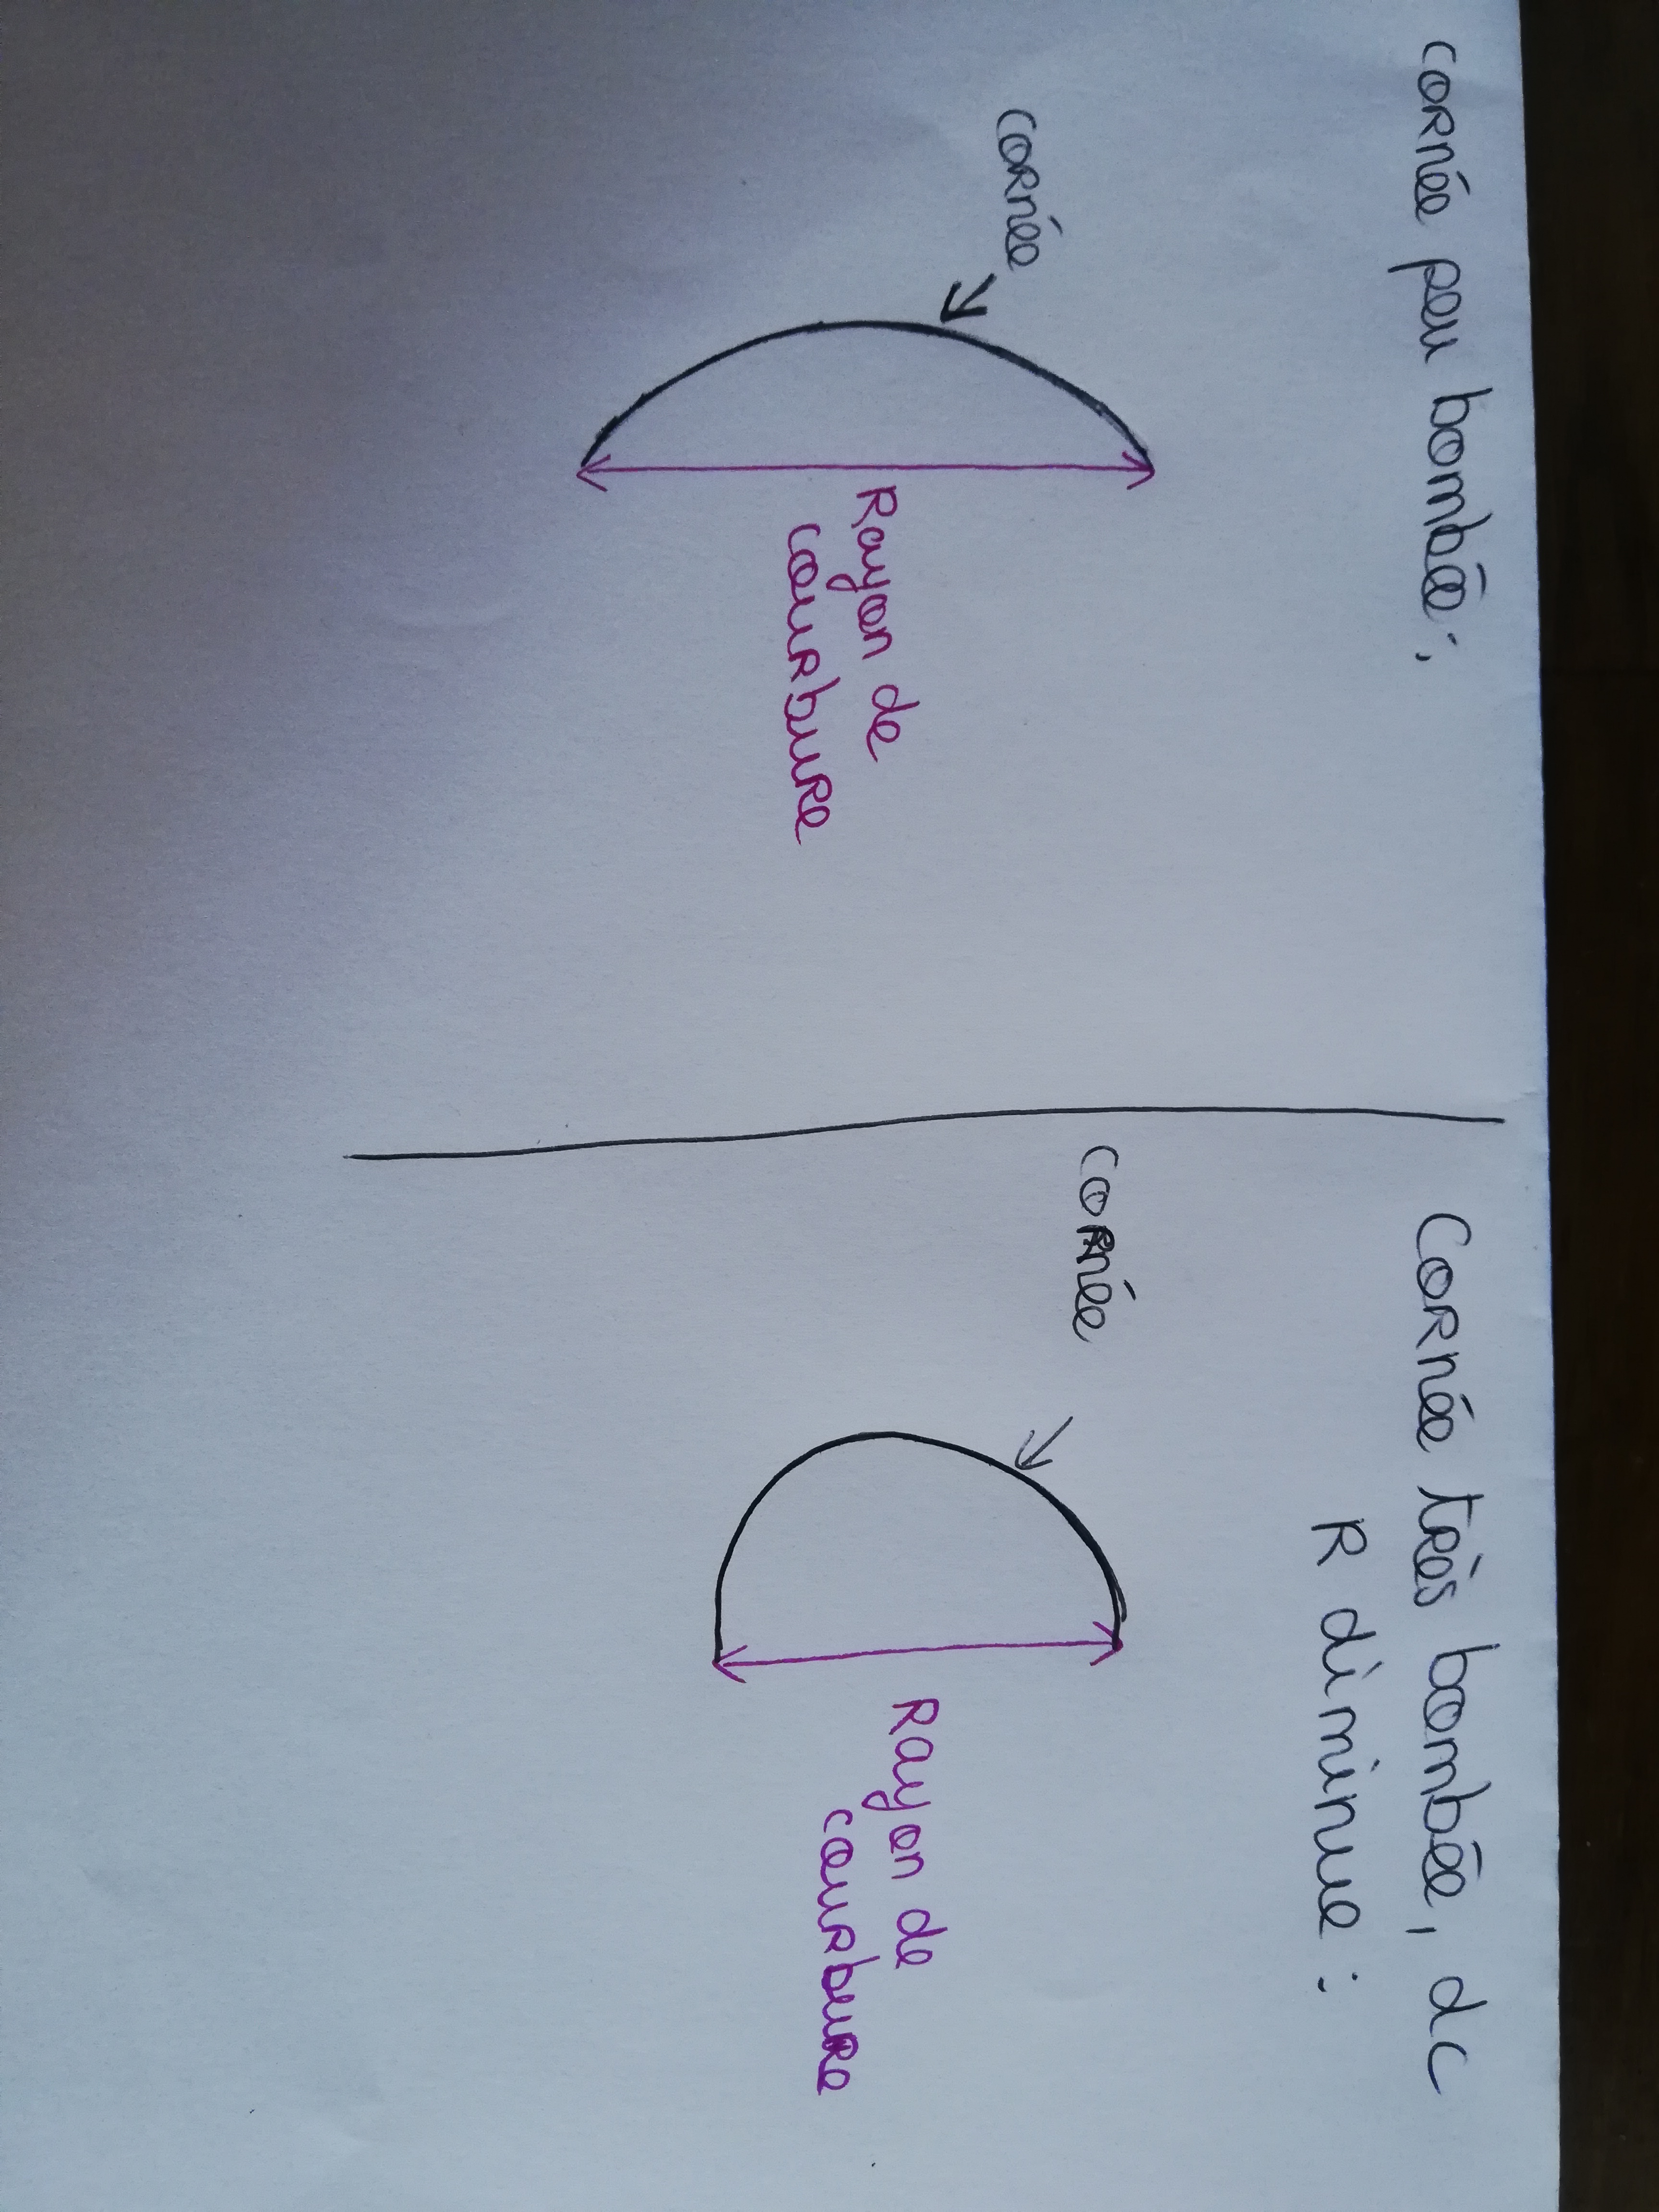 cornée peu bombée :
cornée
Rayon de
courbure
Cornée très bombée, dc
R diminue :
cornée
Rayon de
courbure